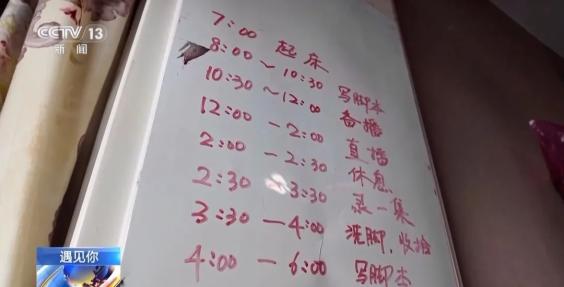 CCTV 13
新闻
7:00 起床
8:00 ~ 10:30 写脚本
10:30 ~ 12:00 备播
12:00 - 2:00 直播
2:00 - 2:30 休息
2:30 - 3:30 录一集
3:30 - 4:00 洗脚、收拾
4:00 - 6:00 写脚本
遇见你